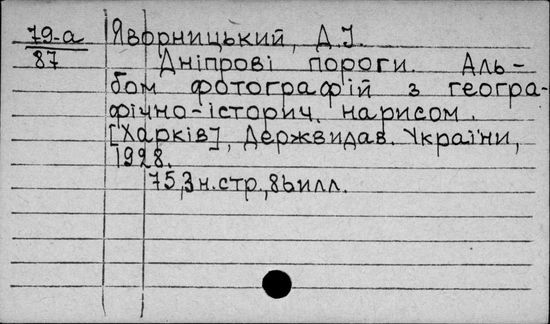 79-а Яворницький, Д.І.
87 Дніпрові пороги. Аль-
бом фотографій з геогра-
фічно-історич. нарисом.
[Харків], Держвидав. України,
1928.
75,3н.стр.,86илл.